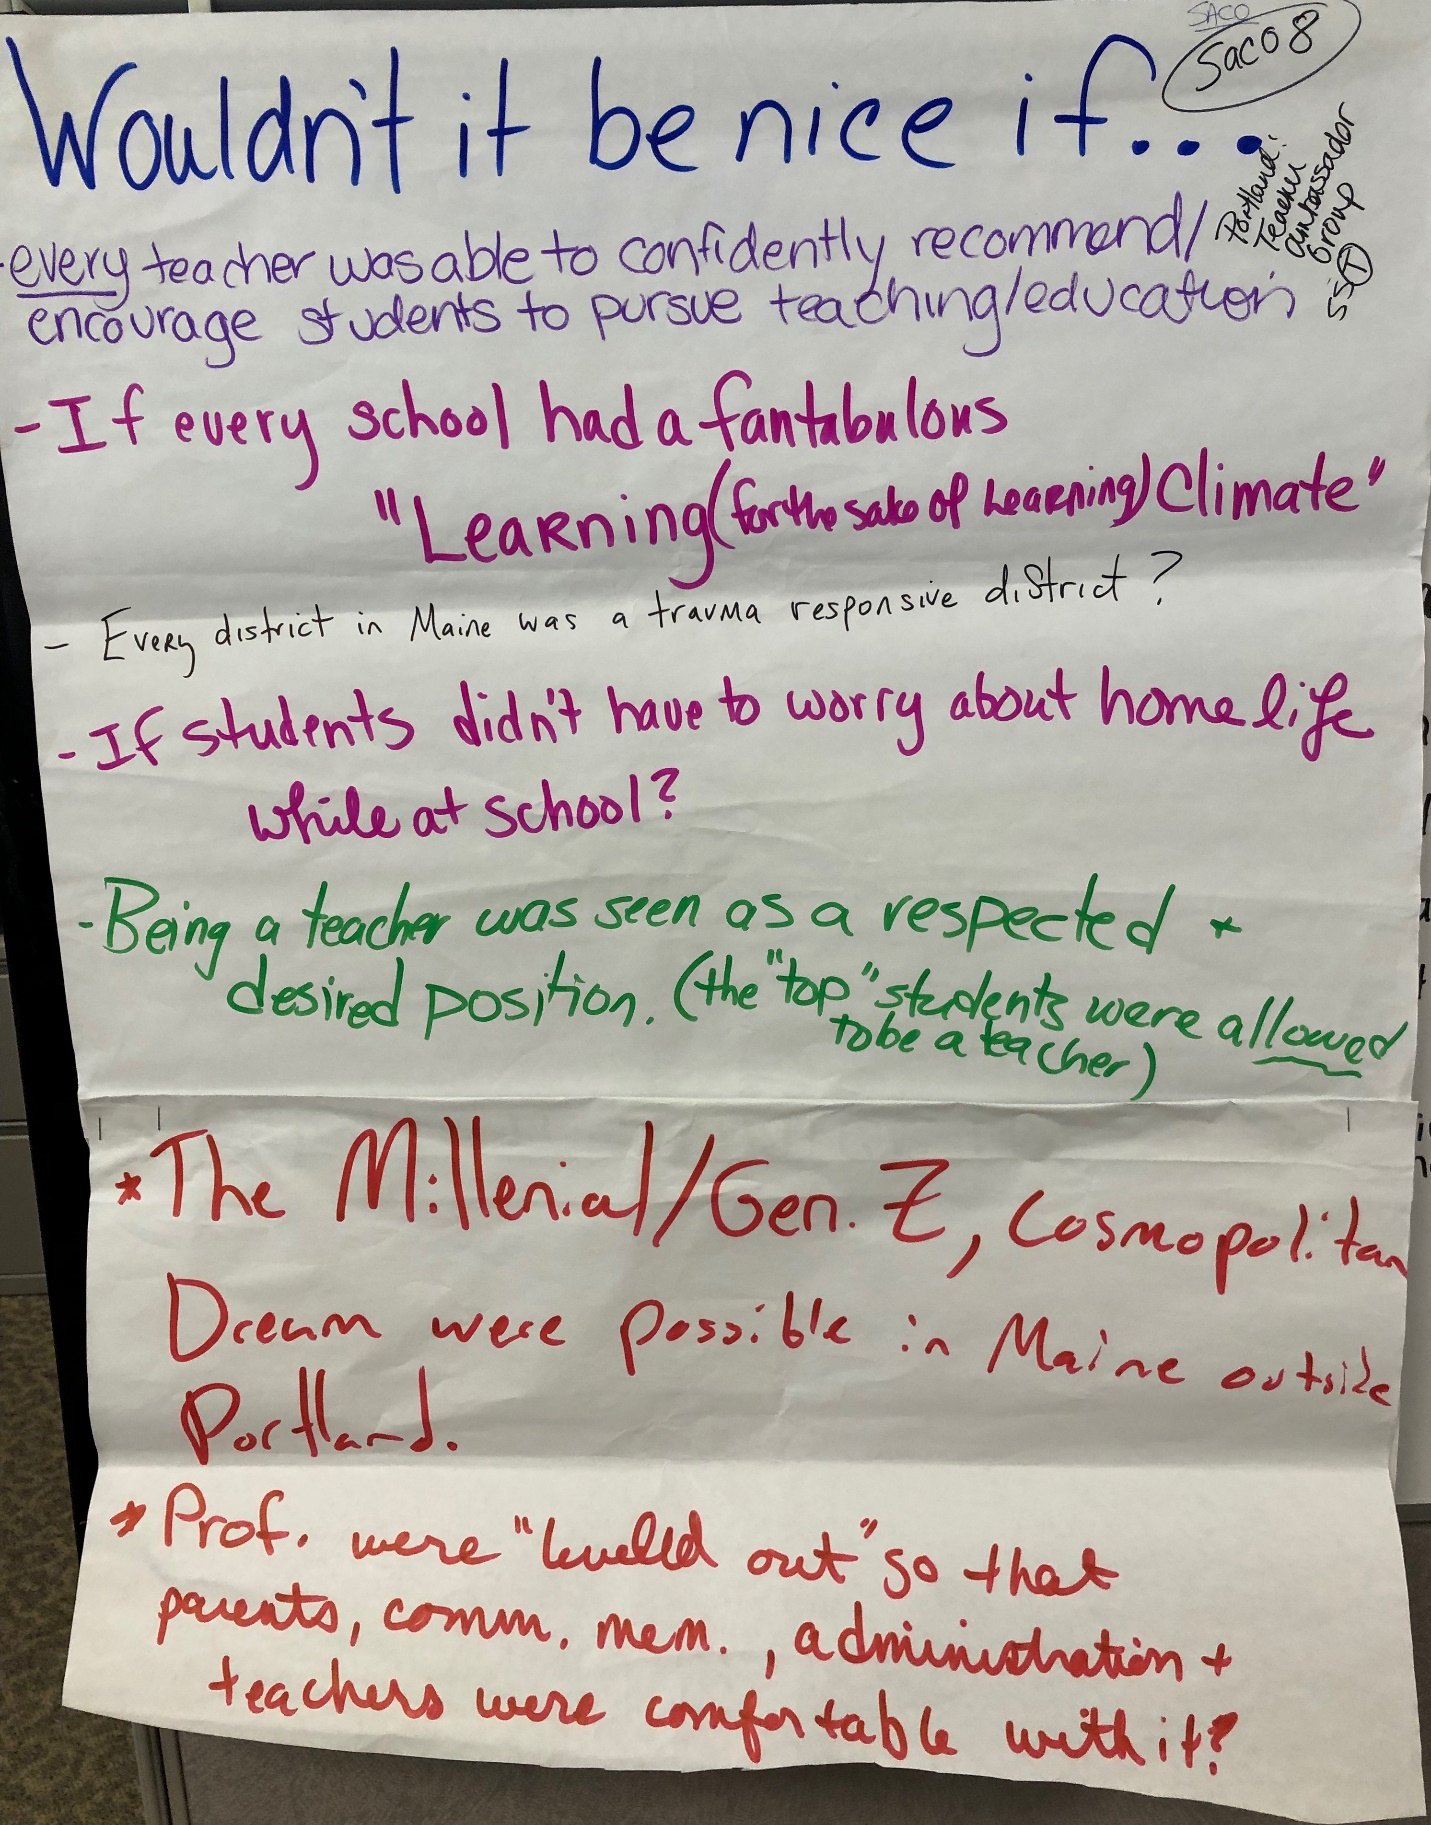 SACO
Saco 8
Wouldn't it be nice if...
Portland:
Teacher
Ambassador
Group
- every teacher was able to confidently recommend/
encourage students to pursue teaching/education
- If every school had a fantabulous
"Learning (for the sake of Learning) Climate"
- Every district in Maine was a trauma responsive district?
- If students didn't have to worry about home life
while at school?
- Being a teacher was seen as a respected +
desired position. (the "top" students were allowed
to be a teacher)
* The Millenial/Gen. Z, Cosmopolitan
Dream were possible in Maine outside
Portland.
* Prof. were "levelled out" so that
parents, comm. mem., administration +
teachers were comfortable with it?